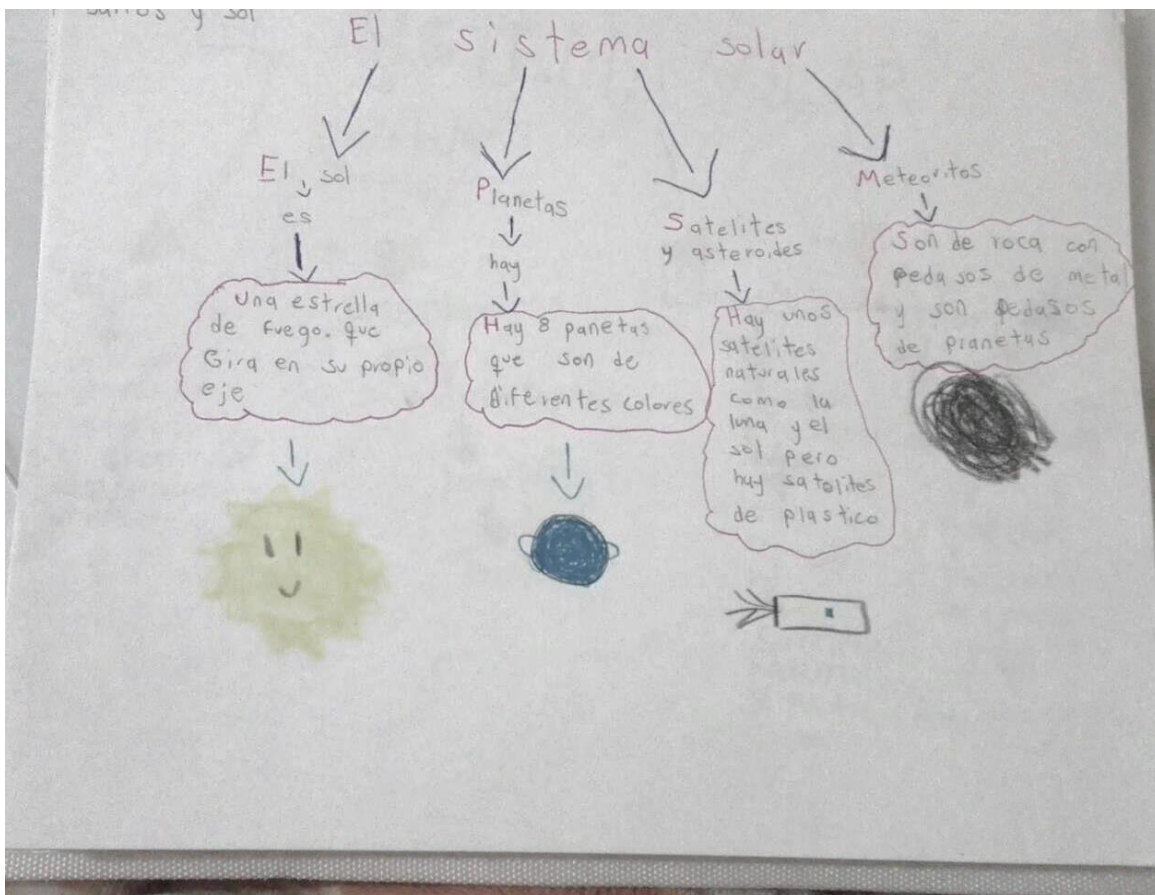 y sol
El sistema solar
El sol
es
Una estrella
de fuego. que
Gira en su propio
eje
Planetas
hay
Hay 8 panetas
que son de
diferentes colores
Satelites
y asteroides
Hay unos
satelites
naturales
como la
luna y el
sol pero
hay satelites
de plastico
Meteoritos
Son de roca con
pedasos de metal
y son pedasos
de planetas